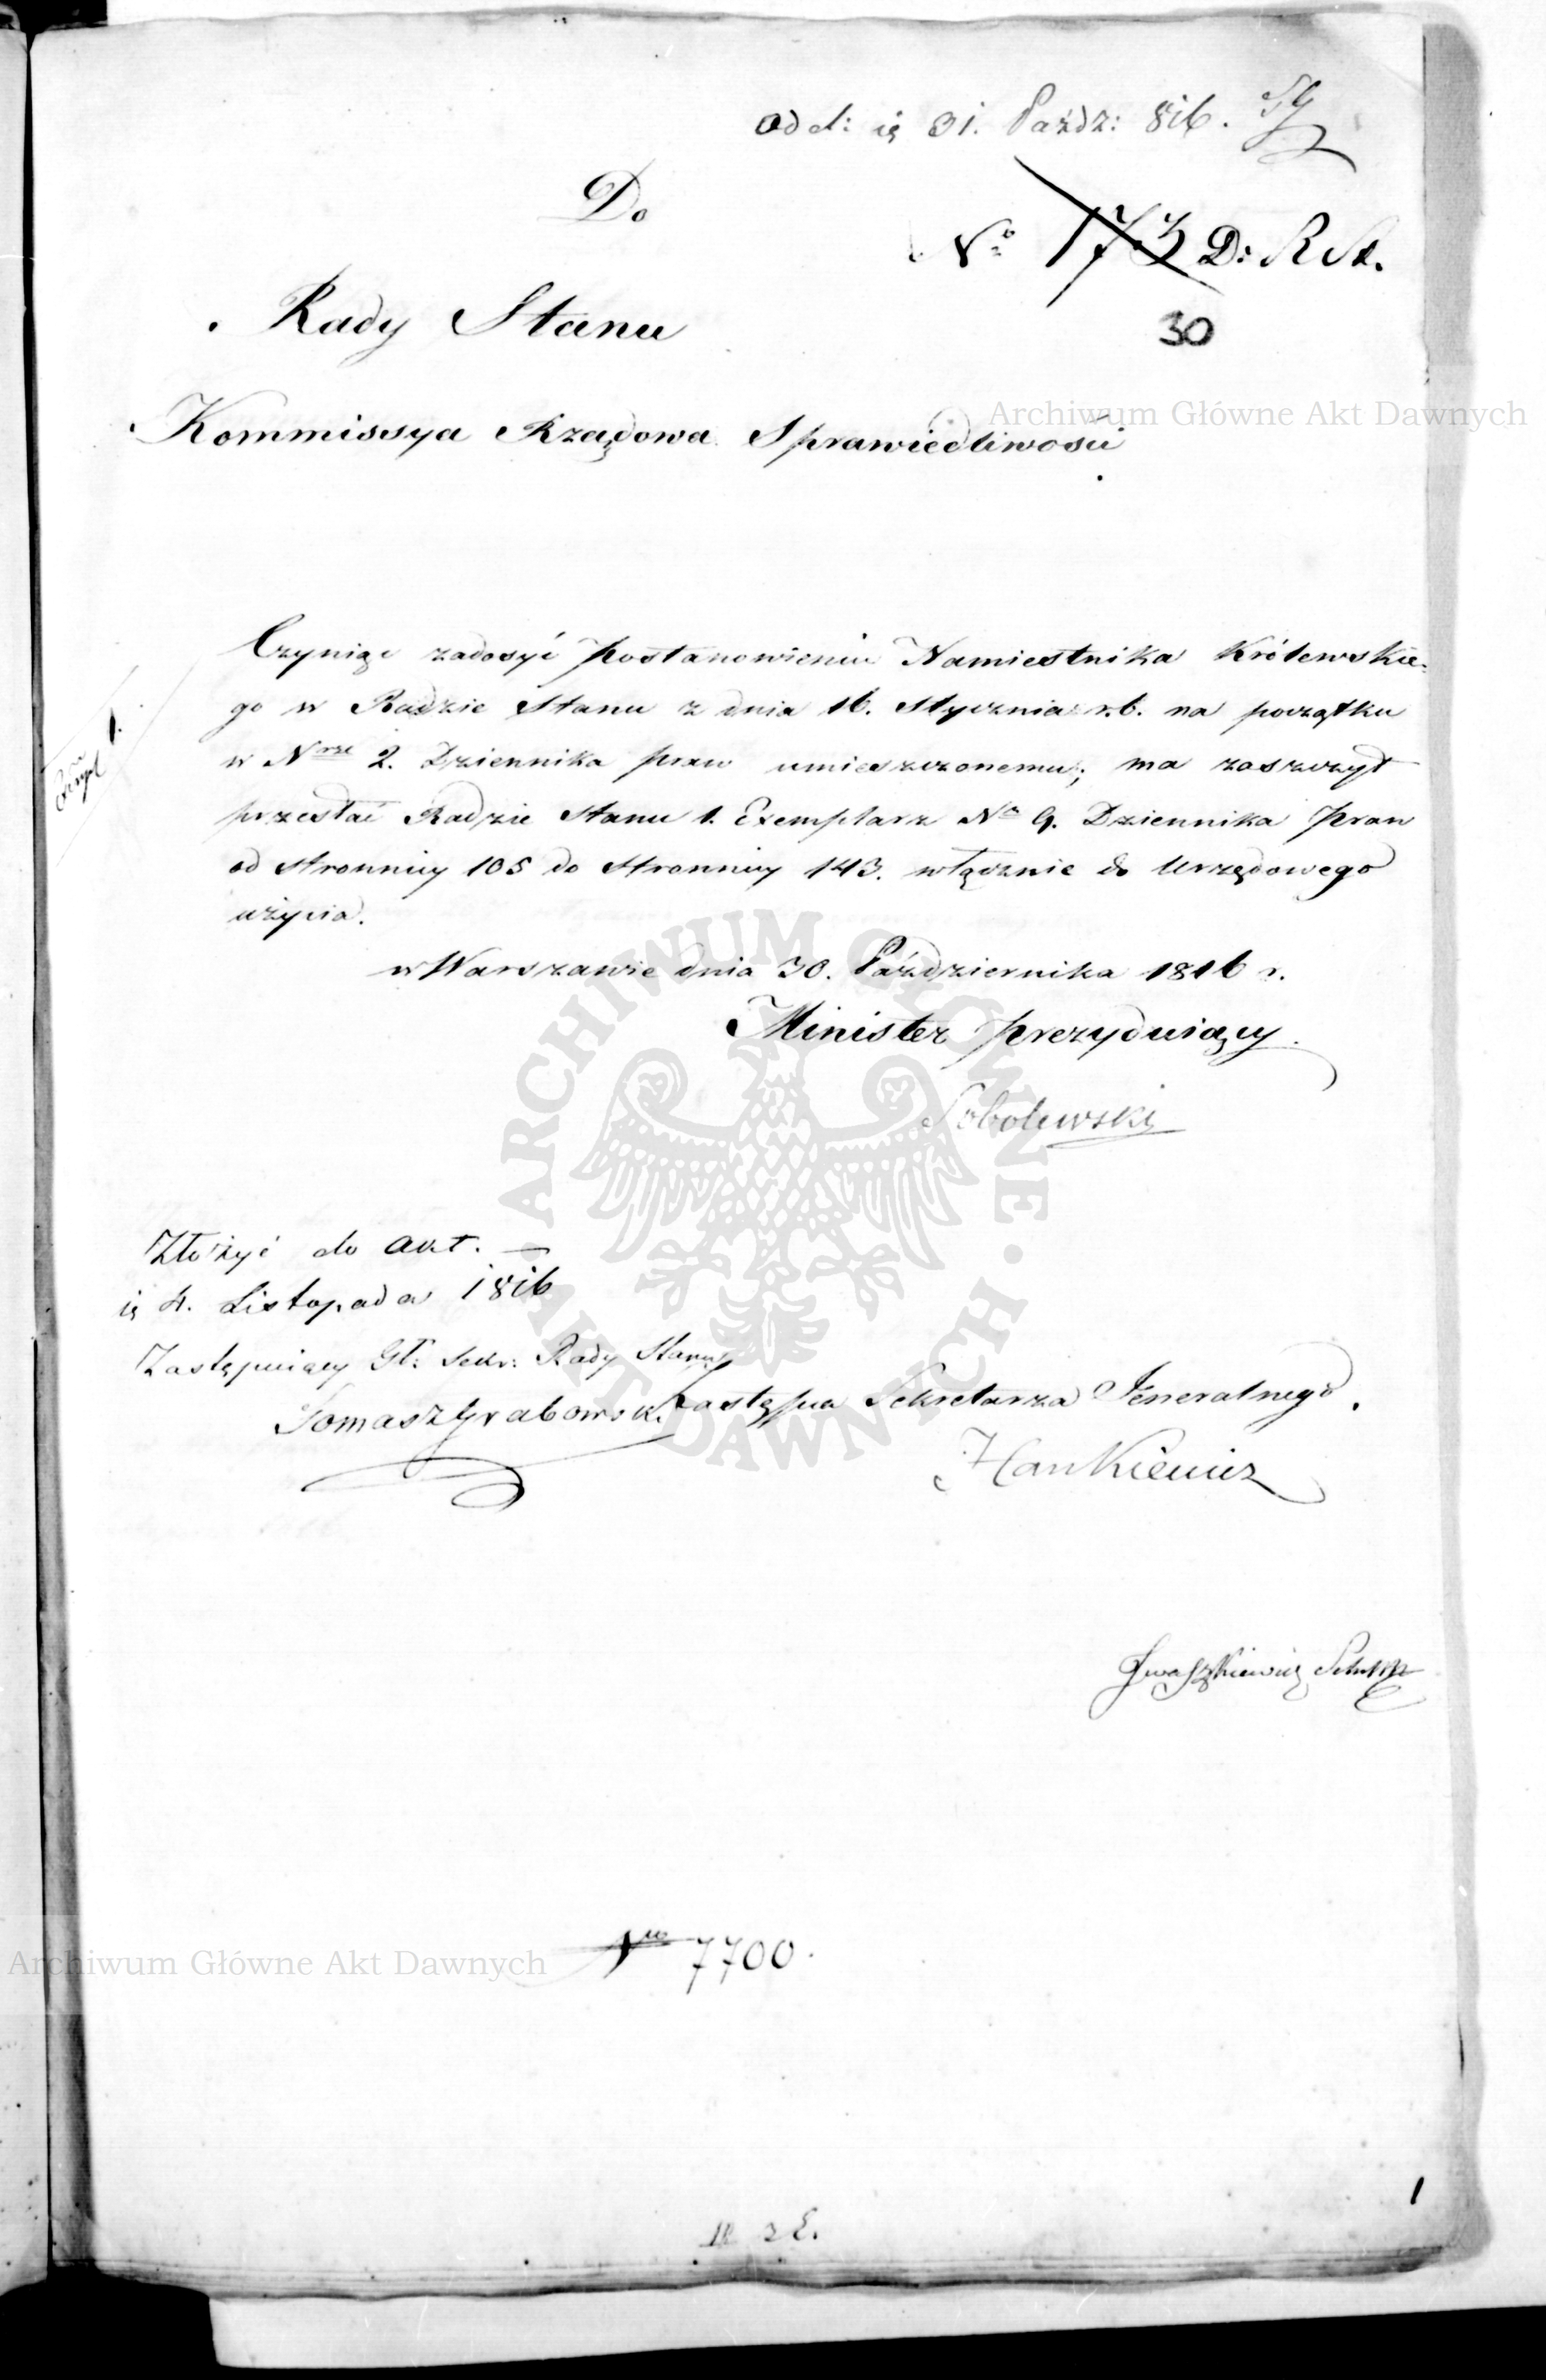 odd: d 31. Paźdz: 816. TG
Do
N° 173 D: R St.
30
Rady Stanu
Archiwum Główne Akt Dawnych
Kommissya Rządowa Sprawiedliwości
Czyniąc zadosyć postanowieniu Namiestnika Królewskie-
go w Radzie Stanu z dnia 16. Stycznia r.b. na początku
w Nrze 2. Dziennika praw umieszczonemu; ma zaszczyt
1.
przesłać Radzie Stanu 1. Exemplarz Nr 9. Dziennika Praw
od stronnicy 105 do stronnicy 143. włącznie do Urzędowego
użycia.
w Warszawie dnia 30. Października 1816 r.
Minister prezydujący
Sobolewski
Złożyć do akt. —
d 4. Listopada 1816
Zastępujący Gł: Sekr: Rady Stanu
Tomasz Grabowski
Zastępca Sekretarza Jeneralnego.
Hankiewicz
Iwaszkiewicz
Nro 7700.
Archiwum Główne Akt Dawnych
1
ARCHIWUM GŁÓWNE AKT DAWNYCH